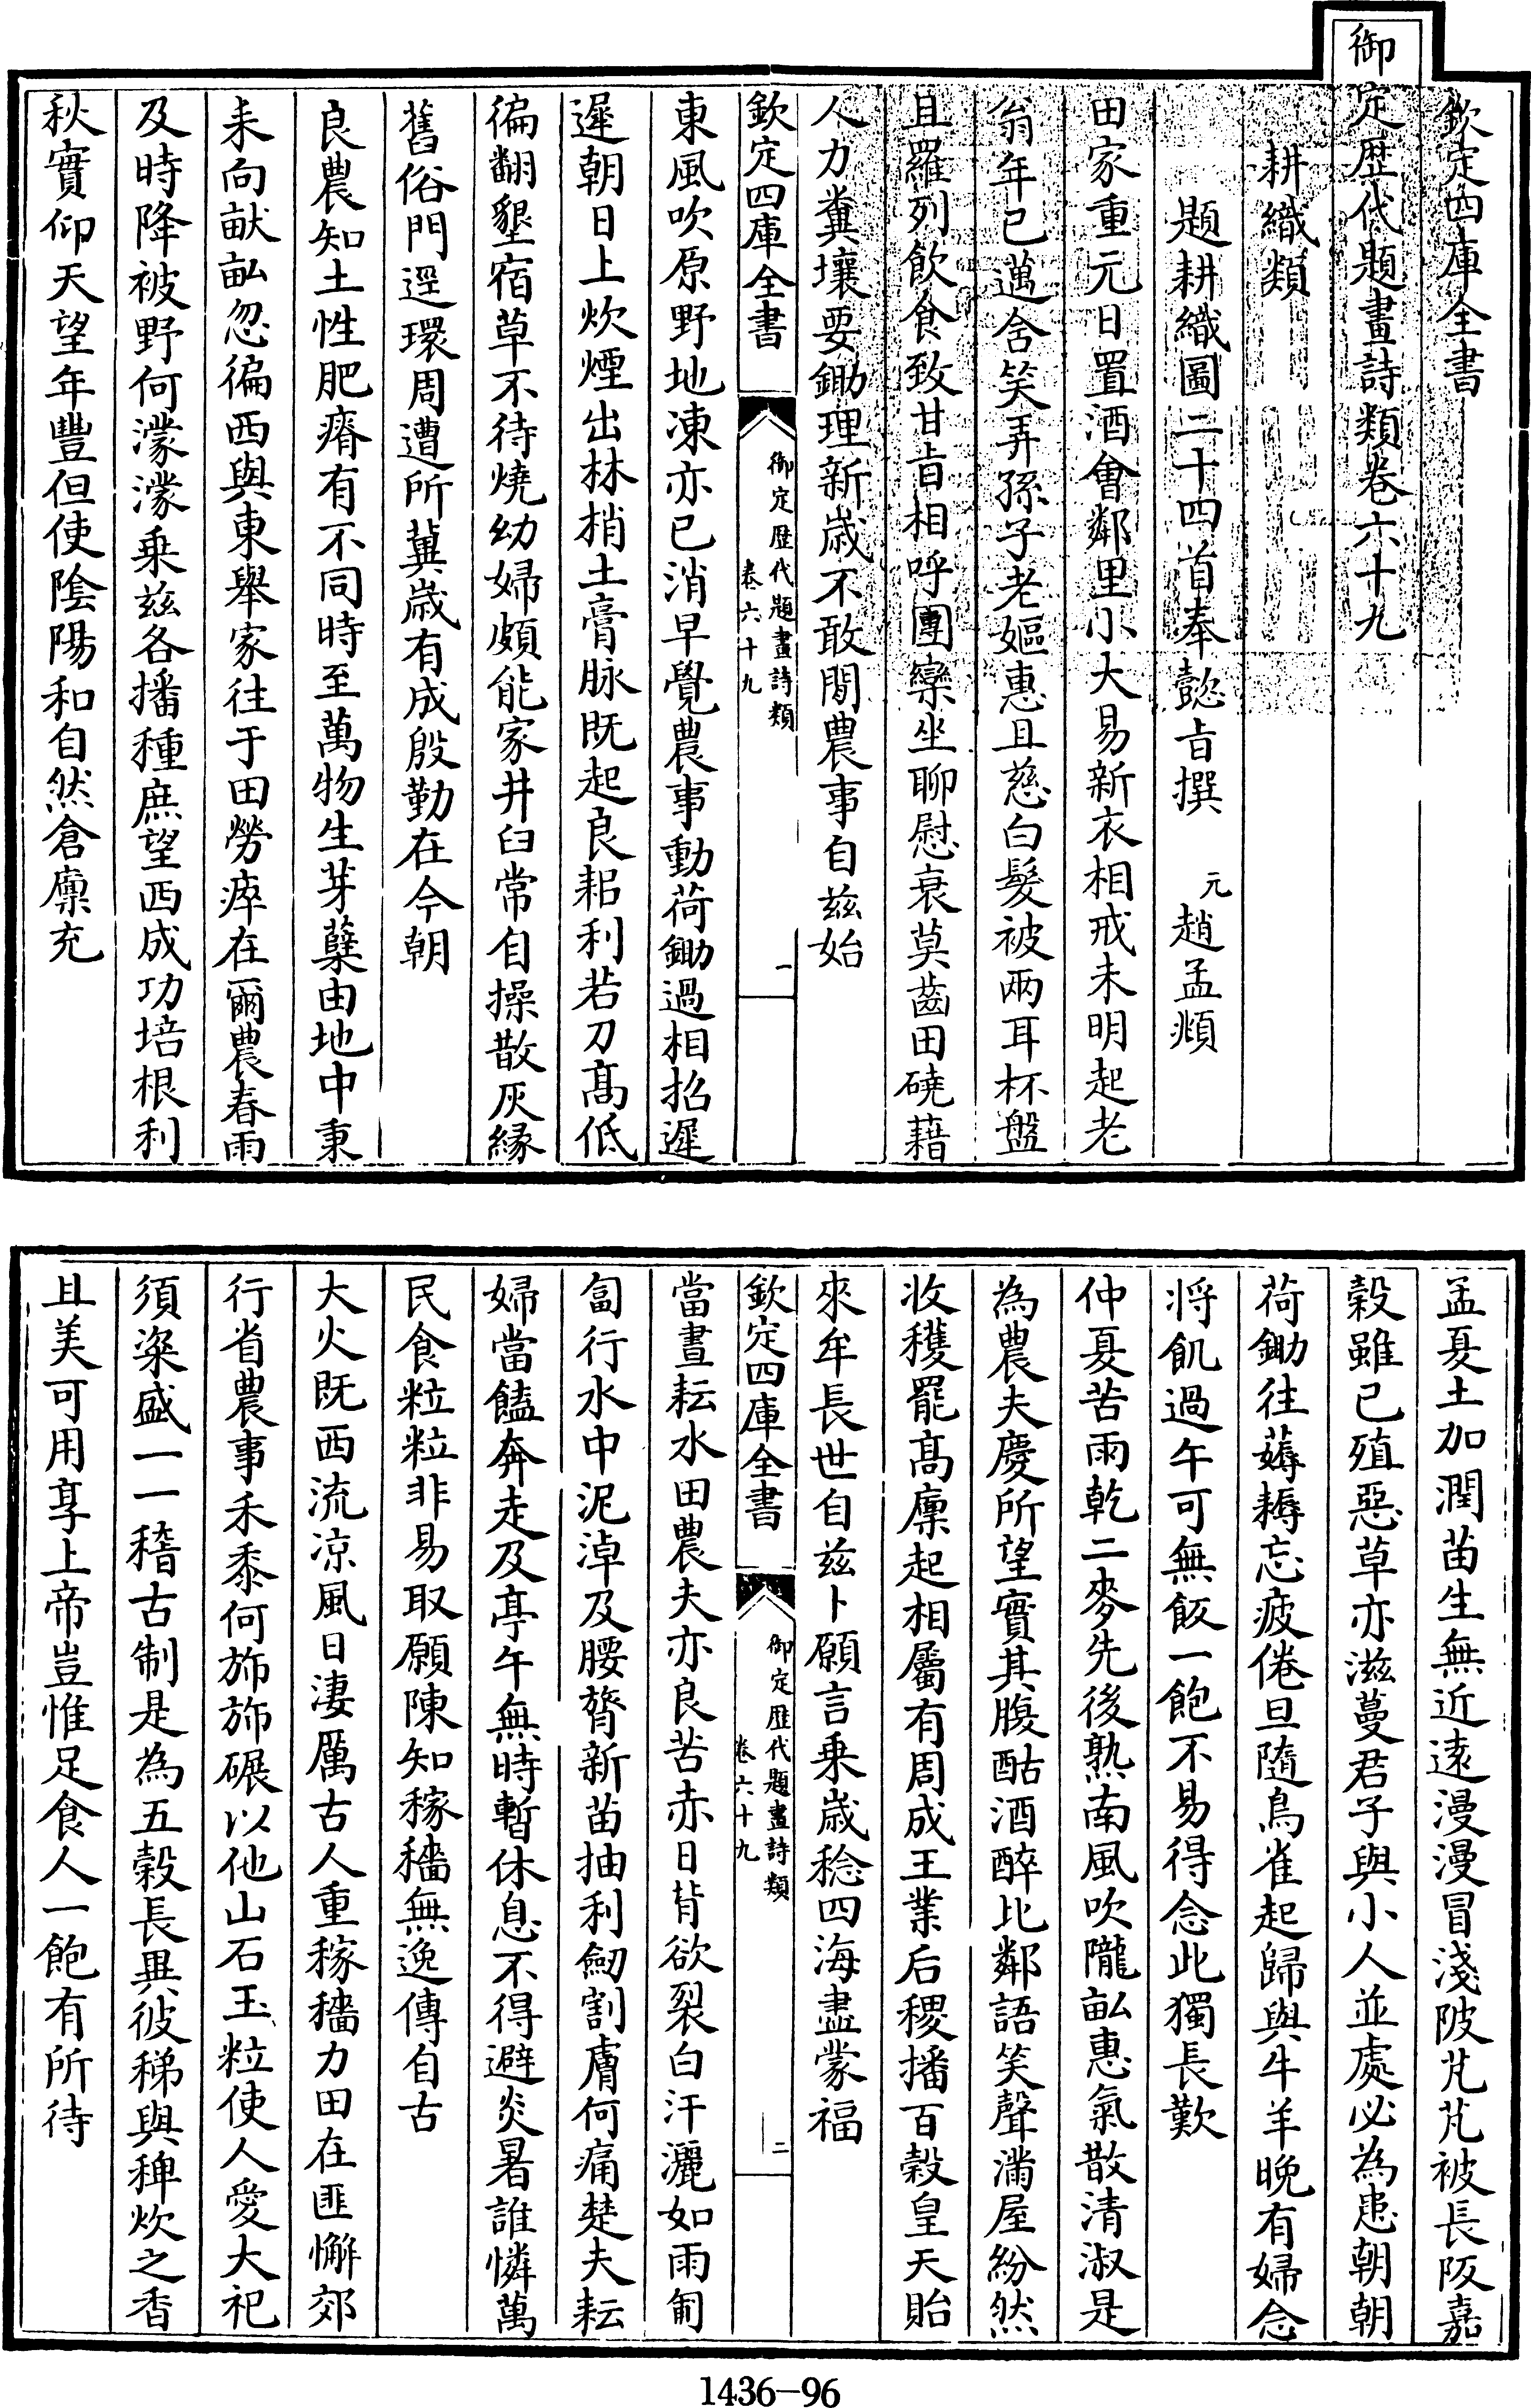 欽定四庫全書
御定歴代題畫詩類卷六十九
耕織類
題耕織圖二十四首奉懿旨撰　元趙孟頫
田家重元日置酒會鄰里小大易新衣相戒未明起老
翁年已邁含笑弄孫子老嫗惠且慈白髮被兩耳杯盤
且羅列飲食致甘旨相呼團欒坐聊慰衰莫齒田磽藉
人力糞壤要鋤理新歲不敢閒農事自兹始
欽定四庫全書
御定歴代題畫詩類
卷六十九
一
東風吹原野地凍亦已消早覺農事動荷鋤過相招遲
遲朝日上炊煙出林梢土膏脉既起良耜利若刀髙低
徧翻墾宿草不待燒幼婦頗能家井臼常自操散灰緣
舊俗門逕環周遭所冀歲有成殷勤在今朝
良農知土性肥瘠有不同時至萬物生芽蘖由地中秉
耒向畎畝忽徧西與東舉家往于田勞瘁在爾農春雨
及時降被野何濛濛乗兹各播種庶望西成功培根利
秋實仰天望年豐但使陰陽和自然倉廪充
孟夏土加潤苗生無近遠漫漫冒淺陂芃芃被長阪嘉
榖雖已殖惡草亦滋蔓君子與小人並處必為患朝朝
荷鋤往薅耨忘疲倦旦隨鳥雀起歸與牛羊晚有婦念
将飢過午可無飯一飽不易得念此獨長歎
仲夏苦雨乾二麥先後熟南風吹隴畝惠氣散清淑是
為農夫慶所望實其腹酤酒醉比鄰語笑聲滿屋紛然
收穫罷髙廪起相屬有周成王業后稷播百榖皇天貽
來牟長世自兹卜願言乗歲稔四海盡蒙福
欽定四庫全書
御定歴代題畫詩類
卷六十九
二
當晝耘水田農夫亦良苦赤日背欲裂白汗灑如雨匍
匐行水中泥淖及腰膂新苗抽利劒割膚何痛楚夫耘
婦當饁奔走及亭午無時暫休息不得避炎暑誰憐萬
民食粒粒非易取願陳知稼穡無逸傳自古
大火既西流凉風日淒厲古人重稼穡力田在匪懈郊
行省農事禾黍何斾斾碾以他山石玉粒使人愛大祀
須粢盛一一稽古制是為五榖長異彼稊與稗炊之香
且美可用享上帝豈惟足食人一飽有所待
1436-96